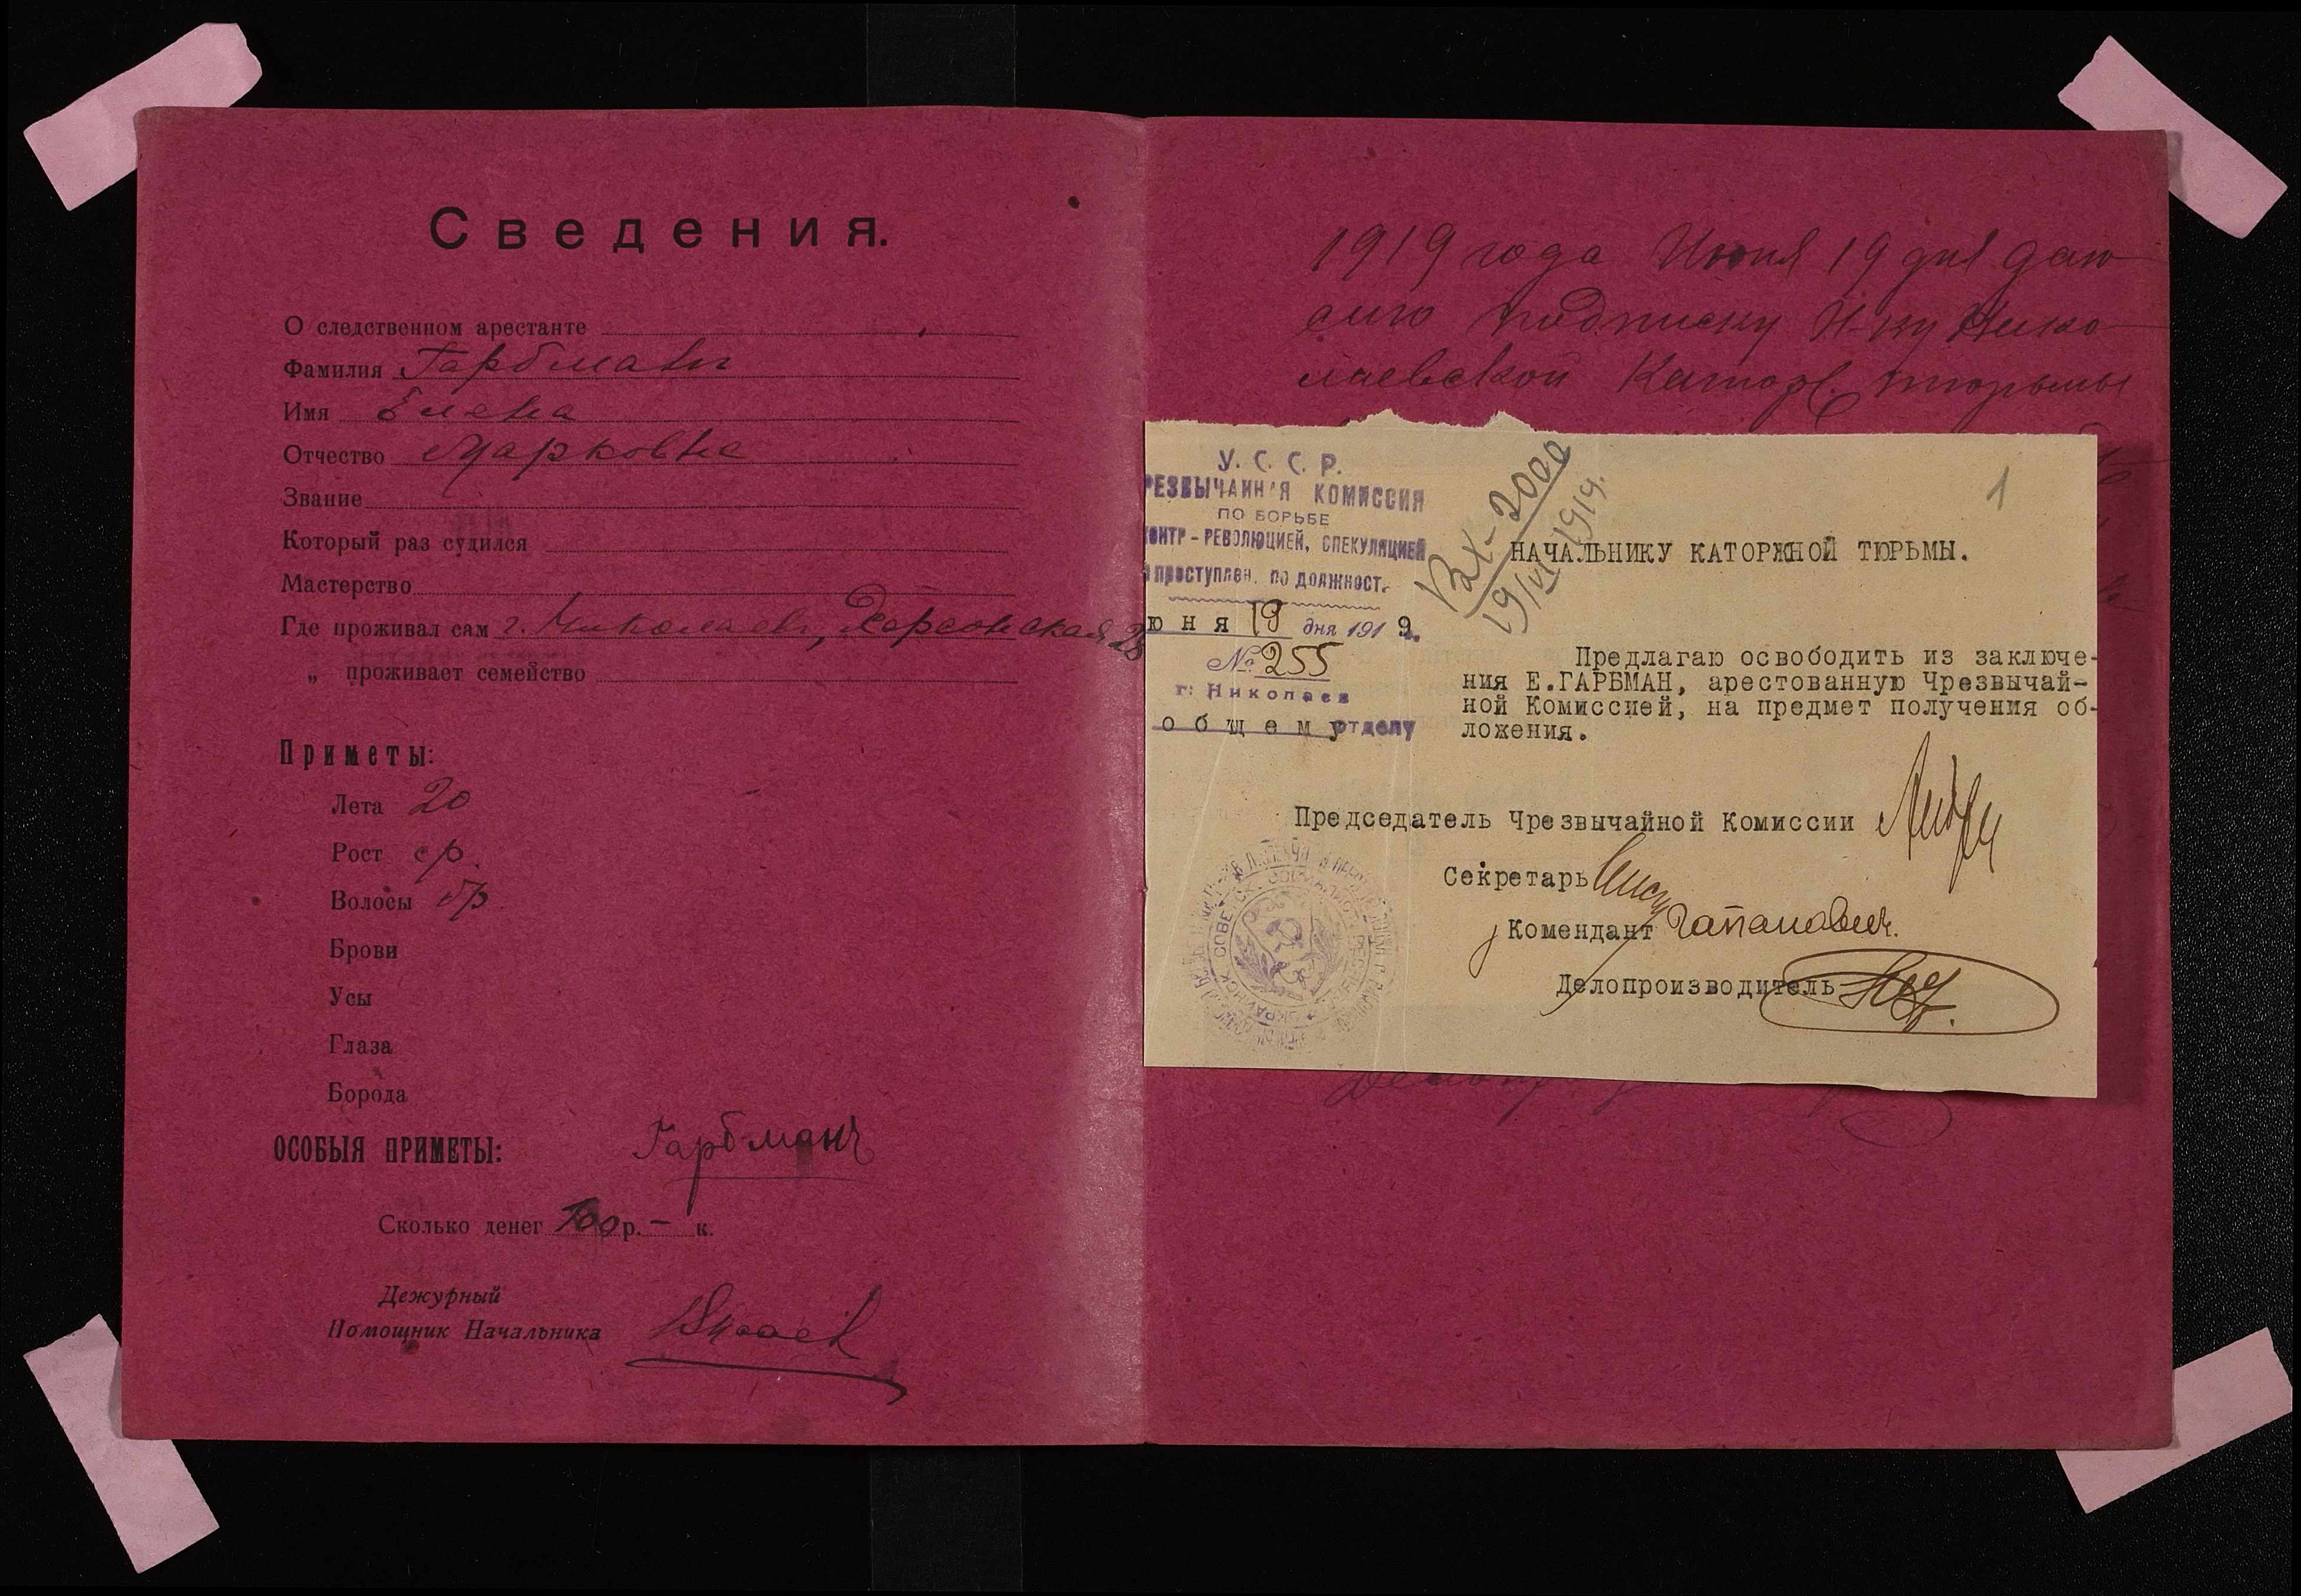 Сведения.
О следственном арестанте
Фамилия Гарбманъ
Имя Елена
Отчество Марковна
Звание
Который раз судился
Мастерство
Где проживал сам г. Николаевъ, Херсонская 28
„ проживает семейство
Приметы:
Лета 20
Рост ср.
Волосы бр.
Брови
Усы
Глаза
Борода
ОСОБЫЯ ПРИМЕТЫ:
Гарбманъ
Сколько денег р. — к.
Дежурный
Помощник Начальника
1919 года Июня 19 дня даю
сию подписку Н-ку Нико
лаевской Каторж. тюрьмы
У. С. С. Р.
РЕЗВЫЧАЙНАЯ КОМИССИЯ
ПО БОРЬБЕ
КОНТР-РЕВОЛЮЦИЕЙ, СПЕКУЛЯЦИЕЙ
и преступлен. по должност.
юня 19 дня 1919.
№ 255
г. Николаев
общему отделу
Вх-2000
19/VI 1919.
1
НАЧАЛЬНИКУ КАТОРЖНОЙ ТЮРЬМЫ.
Предлагаю освободить из заключе-
ния Е.ГАРБМАН, арестованную Чрезвычай-
ной Комиссией, на предмет получения об-
ложения.
Председатель Чрезвычайной Комиссии
Секретарь
Комендант Гапанович.
Делопроизводитель